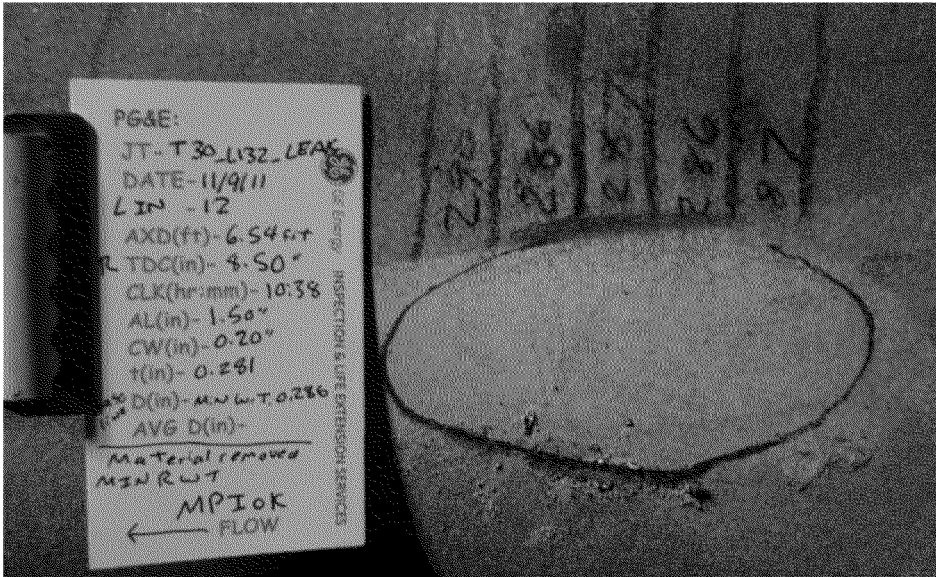 PG&E:
JT- T30_L132_LEAK
DATE- 11/9/11
LIN - 12
AXD(ft)- 6.54 FT
R TDC(in)- 8.50"
CLK(hr:mm)- 10:38
AL(in)- 1.50"
CW(in)- 0.20"
t(in)- 0.281
D(in)- MIN W.T. 0.286
AVG D(in)-
Material removed
MIN RWT
MPI OK
← FLOW
Energy INSPECTION & LIFE EXTENSION SERVICES
290
286
287
286
87